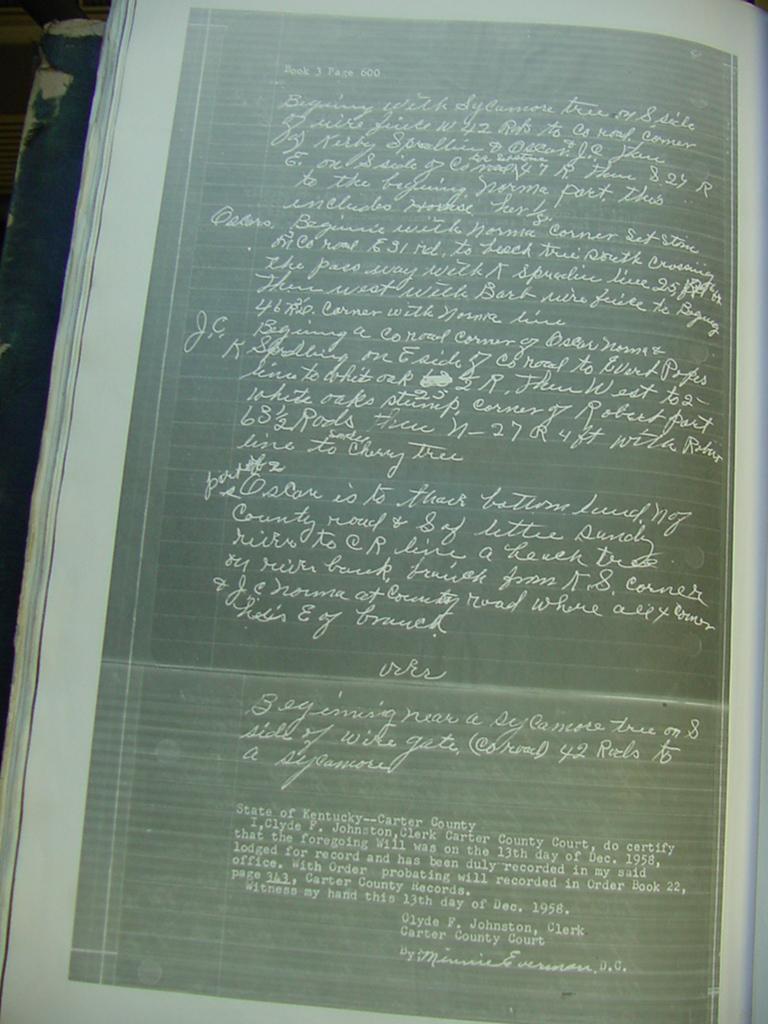 Book 3 Page 600
Begining with Sycamore tree on S side
of wire fence W 42 Rods to Co road corner
of Kirby Spradlin & Oscar & J.C. then
E. on S side of Co road 47 R then S 27 R
to the begining Norma part this
includes house
Oscars, Beginnie with Norma corner set stone
on Co road E 31 rd, to beech tree South crossing
the pass way with K Spradlin line 25
then west with Barb wire fence to Beging
46 Rd. corner with Norma line
J.C. Begining a Co road corner of Oscar Norma &
K Spradling on E side of Co road to Evert Popes
line to whit oak 25 R, then West to 2-
white oaks stump, corner of Robert part
63½ Rods then N - 27 R 4 ft with Robert
line to Cherry Tree
part #2
Oscar is to have bottom land N of
County road & S of little sandy
river to C R line a beech tree
on river bank, branch from K.S. corner
& J.C Norma at County road where all 4 corner
this E of branch
over
Beginning near a sycamore tree on S
side of wire gate, Co road 42 Rods to
a sycamore
State of Kentucky--Carter County
I,Clyde F. Johnston,Clerk Carter County Court, do certify
that the foregoing Will was on the 13th day of Dec. 1958,
lodged for record and has been duly recorded in my said
office. With Order probating will recorded in Order Book 22,
page 343, Carter County Records.
Witness my hand this 13th day of Dec. 1958.
Clyde F. Johnston, Clerk
Carter County Court
By: Minnie Everman, D.C.